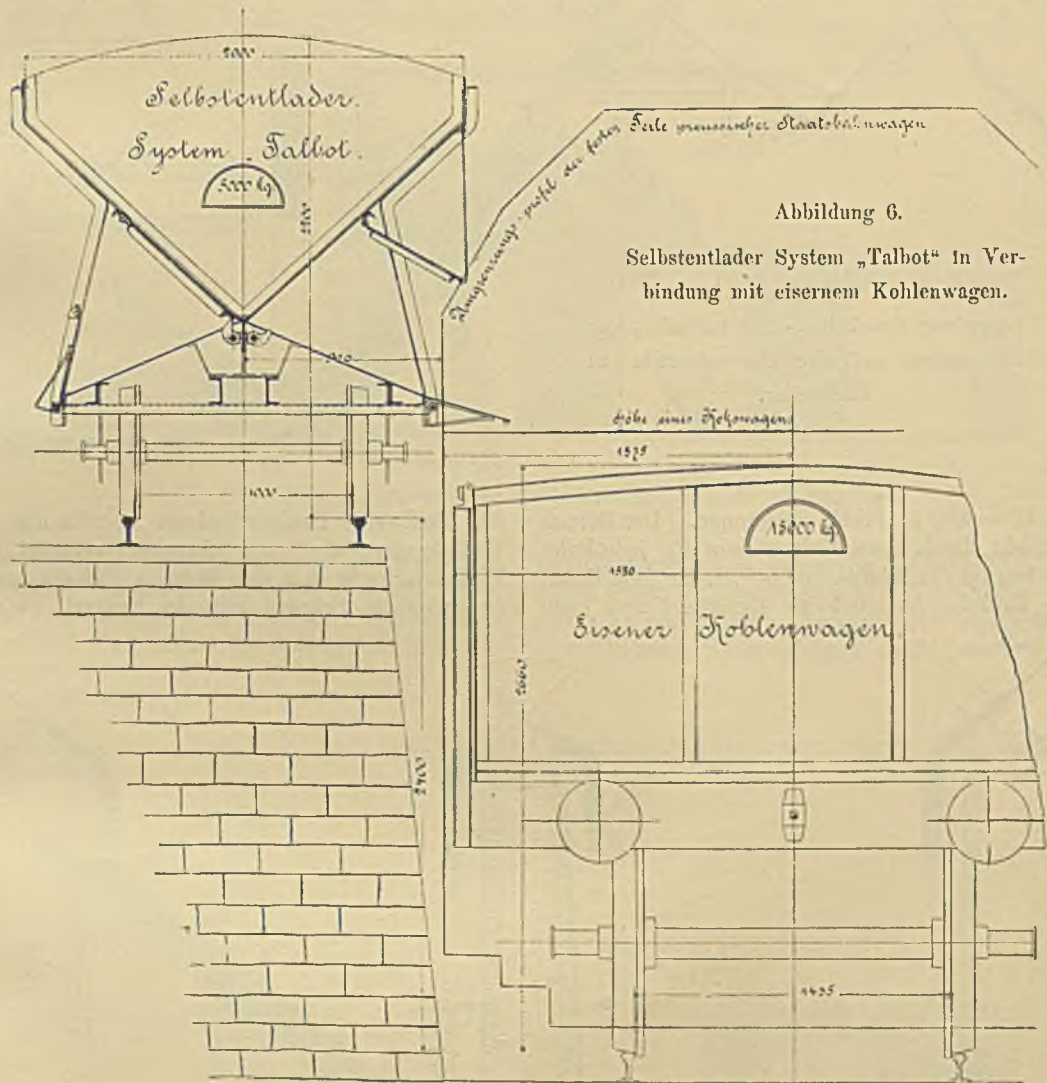 2000
Selbstentlader.
System Talbot.
5000 kg
2200
Umgrenzungs-profil der festen Teile preussischer Staatsbahnwagen
Abbildung 6.
Selbstentlader System „Talbot“ in Ver-
bindung mit eisernem Kohlenwagen.
Höhe eines Kokswagens
1575
1000
15000 kg
1530
Eisener Kohlenwagen
2660
2400
1435